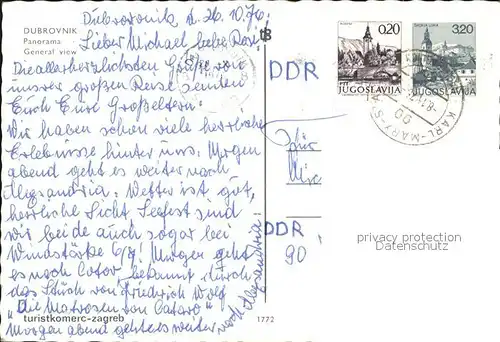 Dubrovnik, d. 26. 10. 76.
DUBROVNIK
Panorama
General view
Lieber Michael, liebe Rosi,
Die allerherzlichsten Grüße von
unsrer großen Reise senden
Euch Eure Großeltern.
Wir haben schon viele herrliche
Erlebnisse hinter uns. Morgen
abend geht es weiter nach
Alexandria. Wetter ist gut,
herrliche Sicht. Seefest sind
wir beide auch sogar bei
Windstärke 6/7! Morgen geht
es nach Cotor bekannt durch
das Stück von Friedrich Wolf
"Die Matrosen von Cataro"
Morgen abend geht es weiter
nach Alexandria!
turistkomerc-zagreb
1772
DDR
0,20
JUGOSLAVIJA
3,20
JUGOSLAVIJA
KARL-MARX-STA
DDR
90
privacy protection
Datenschutz